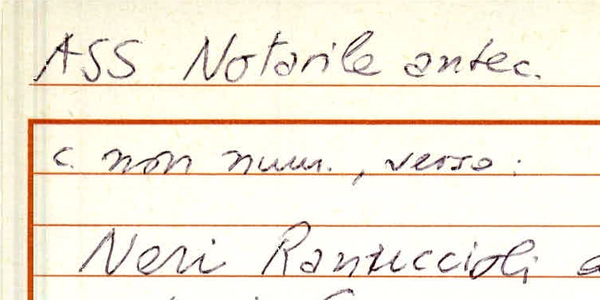 ASS Notarile antec.
c. non num., verso:
Neri Rantuccioli